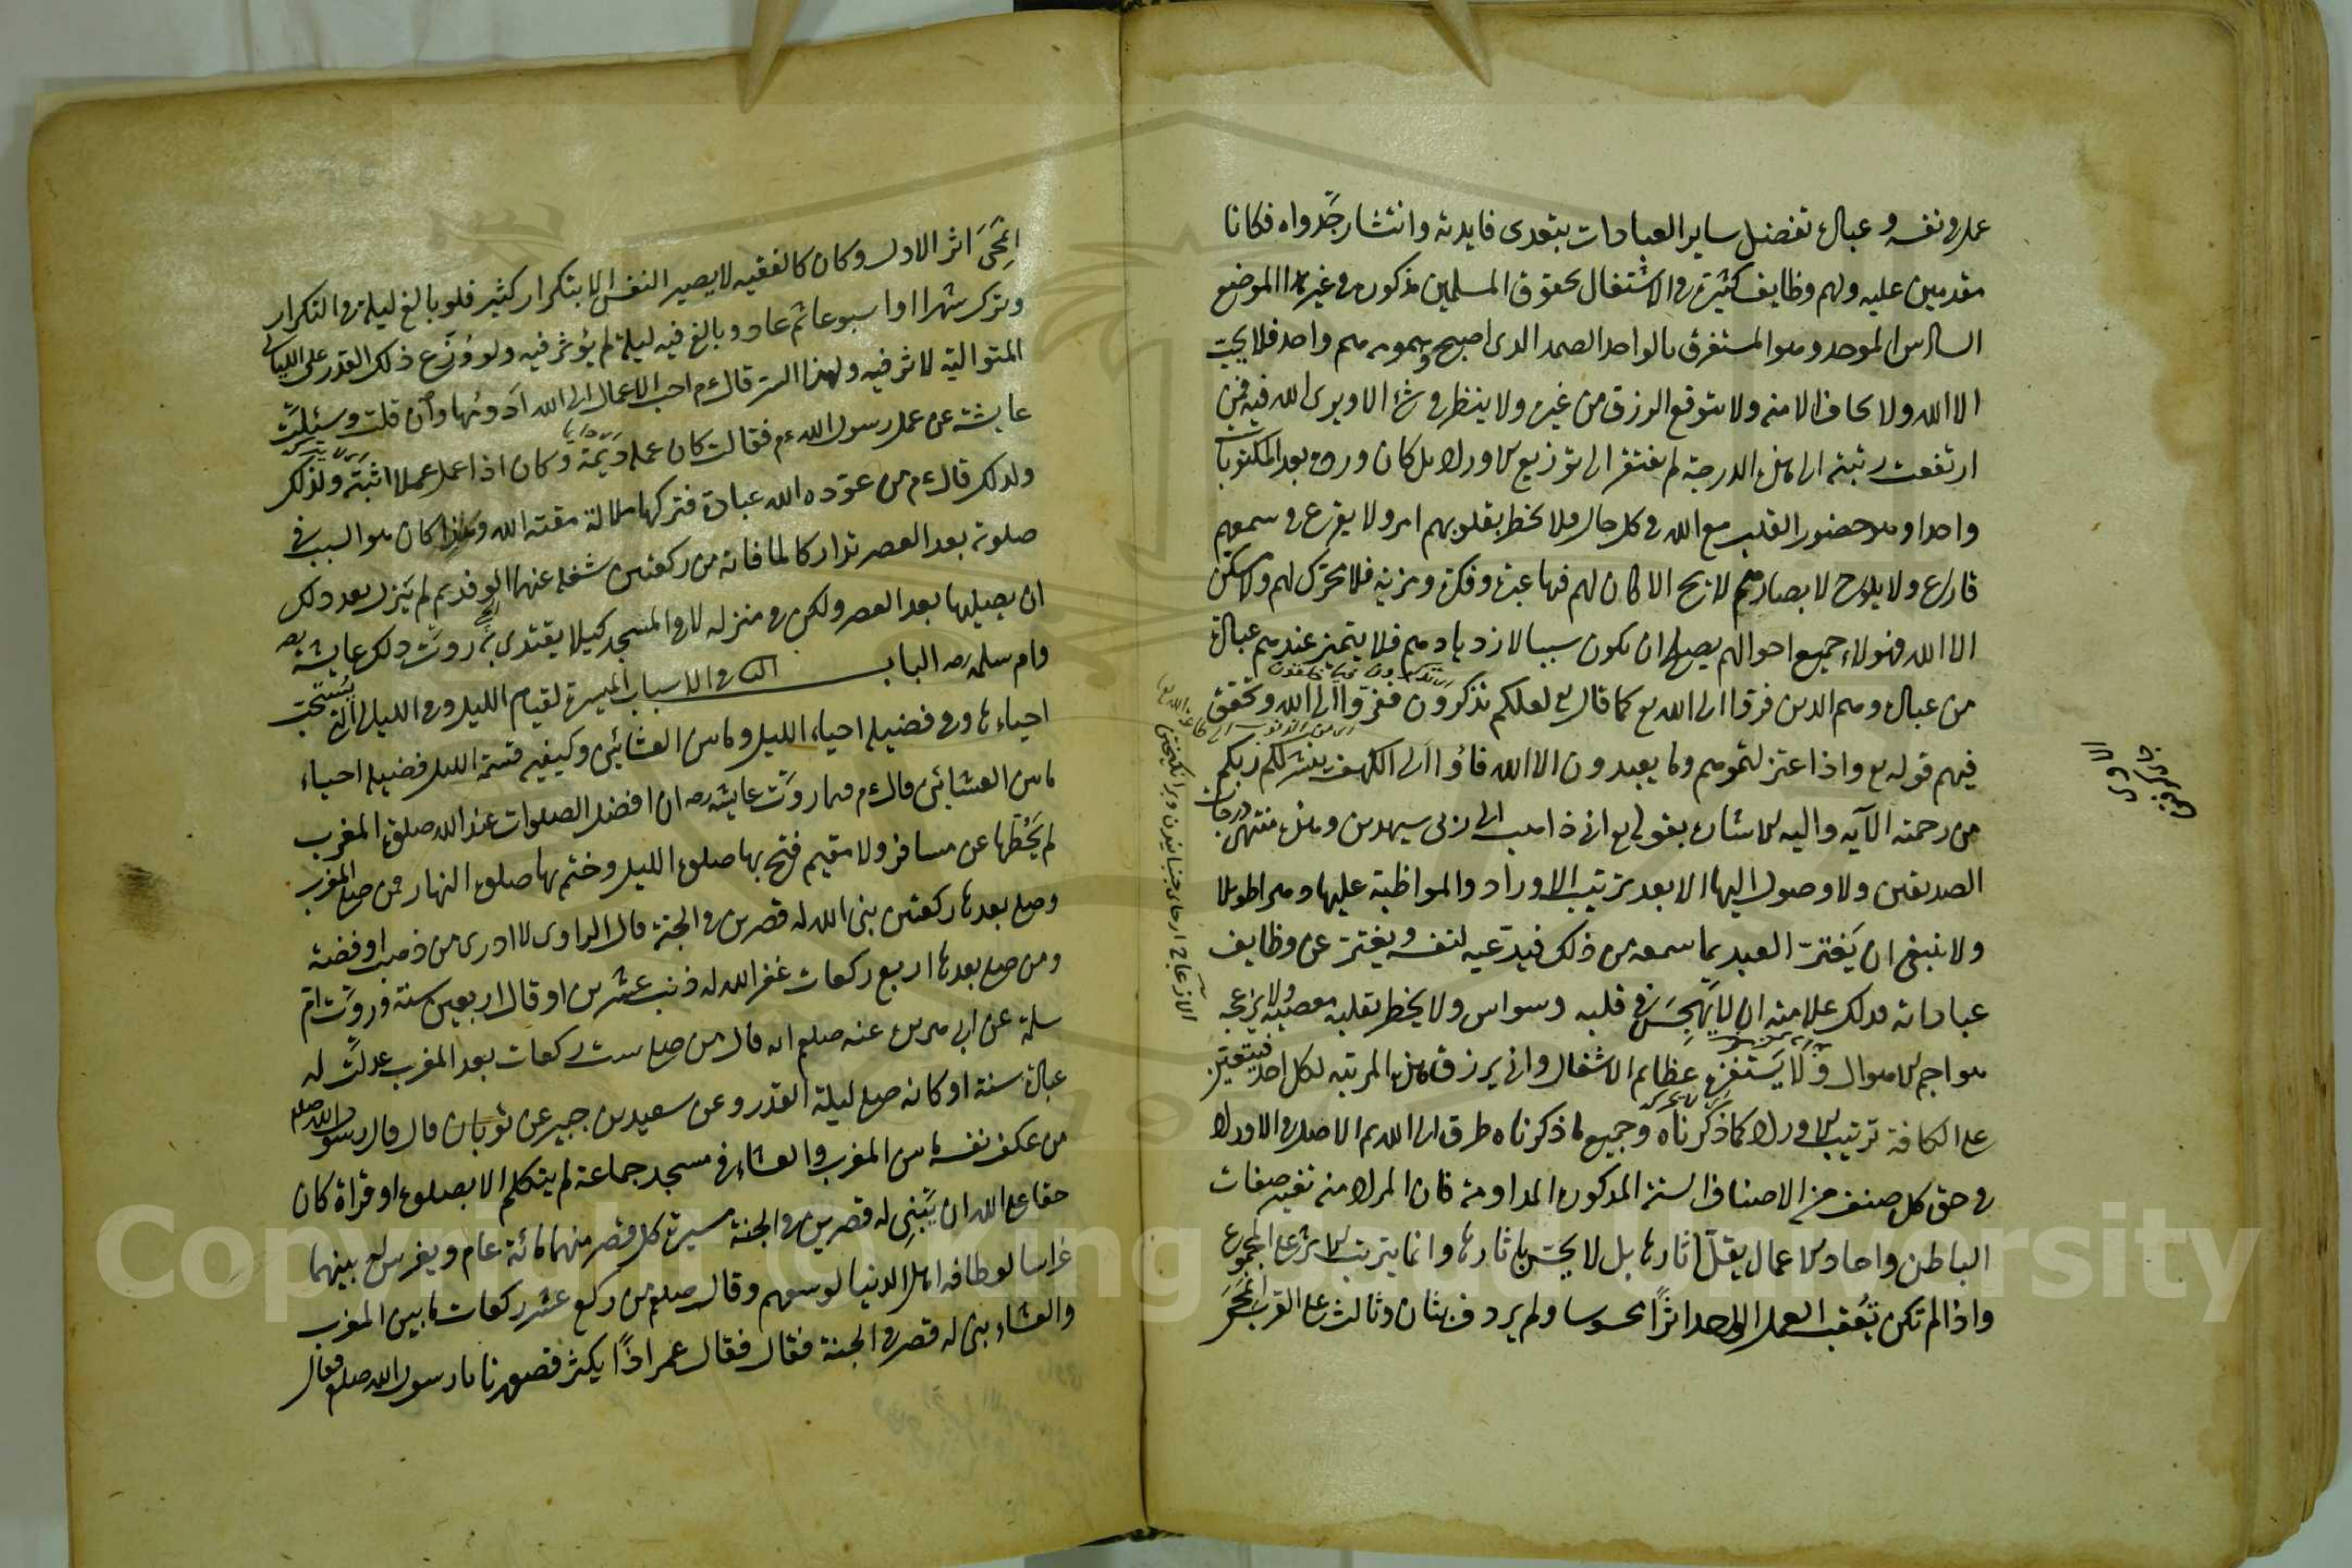 عمله في نفسه وعياله تفضل ساير العبادات بتعدى فايدته وانتشار جدواه فكانا
مقدمين عليه ولهم وظايف كثيرة في الاشتغال بحقوق المسلمين مذكورة في غير هذا الموضع
السادس الموحد وهو المستغرق بالواحد الصمد الذى اصبح وهمومه هم واحد فلا يحب
الا الله ولا يخاف الا منه ولا يتوقع الرزق من غيره ولا ينظر في شئ الا ويرى الله فيه فمن
ارتفعت رتبته الى هذه الدرجة لم يفتقر الى توزيع الاوراد بل كان ورده بعد المكتوبات
واحدا وهو حضور القلب مع الله في كل حال فلا يخطر بقلوبهم امر ولا يقرع في سمعهم
قارع ولا يلوح لابصارهم لايح الا كان لهم فيها عبرة وفكرة ومزيد فلا محرك لهم ولا مسكن
الا الله فهولاء جميع احوالهم يصلح ان يكون سببا لازديادهم فلا يتميز عندهم عبادة
من عبادة وهم الذين فروا الى الله تع كما قال تع لعلكم تذكرون ففروا الى الله وتحقق
فيهم قوله تع واذا اعتزلتموهم وما يعبدون الا الله فاؤا الى الكهف ينشر لكم ربكم
من رحمته الآيه واليه الاشارة بقوله تع انى ذاهب الى ربى سيهدين وهذه منتهى درجات
الصديقين ولا وصول اليها الا بعد ترتيب الاوراد والمواظبة عليها دهرا طويلا
ولا ينبغى ان يغتر العبد بما سمعه من ذلك فيدعيه لنفسه ويفتر عن وظايف
عباداته فذلك علامته ان لا يهجس في قلبه وسواس ولا يخطر بقلبه معصية ولا يزعجه
هواجم الاهوال ولا يستفزه عظايم الاشغال وانى يرزق هذه المرتبه لكل احد فيتعين
على الكافة ترتيب الاوراد كما ذكرناه وجميع ما ذكرناه طرق الى الله ثم الاصل في الاوراد
في حق كل صنف من الاصناف الستة المذكورة المداومة فان المراد منه تغيير صفات
الباطن واحاد الاعمال يقل اثارها بل لا يحس باثارها وانما يترتب الاثر على المجموع
واذا لم تكن يعقب العمل الواحد اثرا محسوسا ولم يردف بثان وثالث على القرب انمحى
انمحى اثر الاول وكان كالفقيه لا يصير النفس الا بتكرار كثير فلو بالغ ليلة في التكرار
وترك شهرا او اسبوعا ثم عاد وبالغ فيه ليلة لم يؤثر فيه ولو وزع ذلك القدر على الليالى
المتوالية لاثر فيه ولهذا السر قال ءم احب الاعمال الى الله ادومها وان قلت وسئلت
عايشة عن عمل رسول الله ءم فقالت كان عمله ديمة وكان اذا عمل عملا اثبته ولذلك
ولذلك قال ءم من عوده الله عبادة فتركها ملالة مقته الله وهذا كان هو السبب في
صلوته بعد العصر تداركا لما فاته من ركعتين شغله عنهما الوفد ثم لم يزل بعد ذلك
ان يصليها بعد العصر ولكن في منزله لا في المسجد كيلا يقتدى به روت ذلك عايشة رضه
وام سلمه رضه الباب الثانى في الاسباب الميسرة لقيام الليل وفي الليالى التى يستحب
احياءها وفي فضيلة احياء الليل وما بين العشائين وكيفية قسمة الليل فضيلة احياء
ما بين العشائين قال ءم فيما روت عايشه رضه ان افضل الصلوات عند الله صلوة المغرب
لم يحطها عن مسافر ولا مقيم فتح بها صلوة الليل وختم بها صلوة النهار فمن صلى المغرب
وصلى بعدها ركعتين بنى الله له قصرين في الجنة قال الراوى لا ادرى من ذهب او فضة
ومن صلى بعدها اربع ركعات غفر الله له ذنب عشرين او قال اربعين سنة وروت ام
سلمة عن ابى هريرة عنه صلعم انه قال من صلى ست ركعات بعد المغرب عدلت له
عبادة سنة او كانه صلى ليلة القدر وعن سعيد بن جبير عن ثوبان قال قال رسول الله صلعم
من عكف نفسه ما بين المغرب والعشاء في مسجد جماعة لم يتكلم الا بصلوة او قراة كان
حقا على الله ان يبنى له قصرين في الجنة مسيرة كل قصر منهما مائة عام ويغرس له بينهما
غراسا لو طافه اهل الدنيا لوسعهم وقال صلعم من ركع عشر ركعات ما بين المغرب
والعشاء بنى له قصر في الجنة فقال فقال عمر اذا يكثر قصورنا يا رسول الله صلعم فقال
Copyright © King Saud University